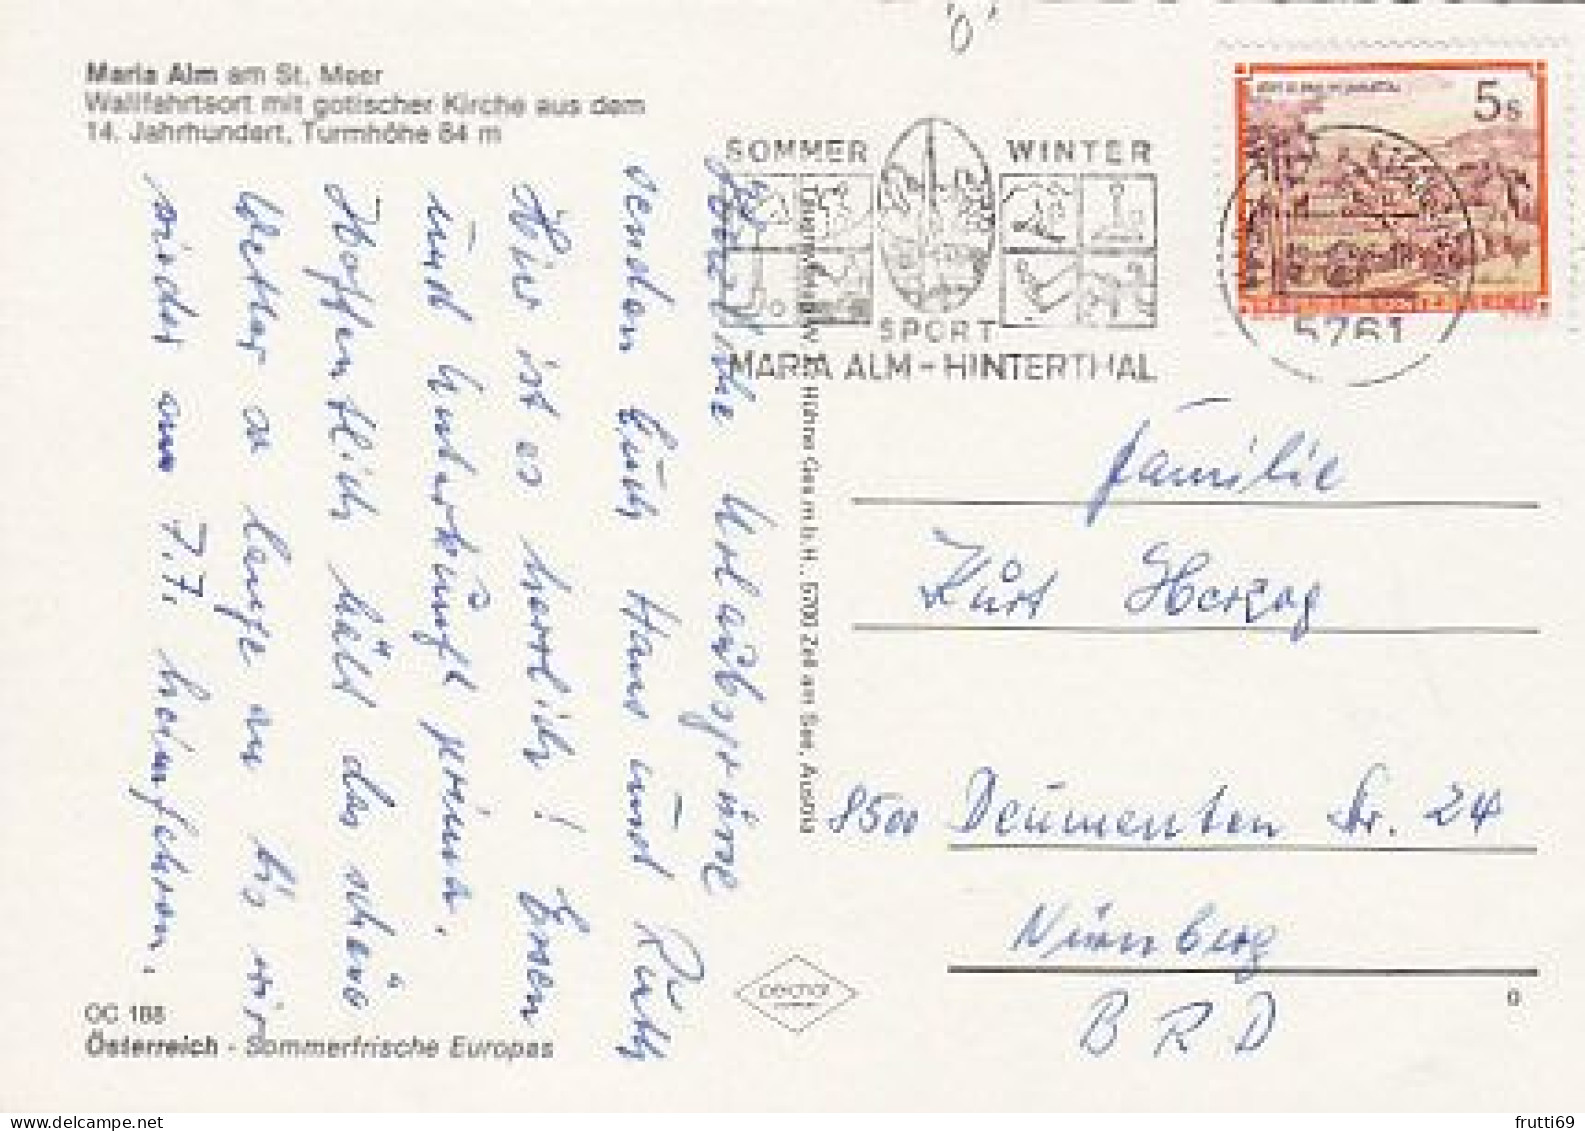 '0'
Maria Alm am St. Meer
Wallfahrtsort mit gotischer Kirche aus dem
14. Jahrhundert, Turmhöhe 84 m
SOMMER WINTER
SPORT
MARIA ALM - HINTERTHAL
5 S
5761
Herzliche Urlaubsgrüsse
senden Euch Hans und Ruth
Hier ist es herrlich! Essen
und Unterkunft prima.
Hoffentlich hält das schöne
Wetter so lange an bis wir
wieder am 7.7. heimfahren.
Hühne Ges.m.b.H., 5700 Zell am See, Austria
Familie
Kurt Herzog
8500 Deumenten Str. 24
Nürnberg
BRD
pechal
0
OC 188
Österreich - Sommerfrische Europas
frutti69